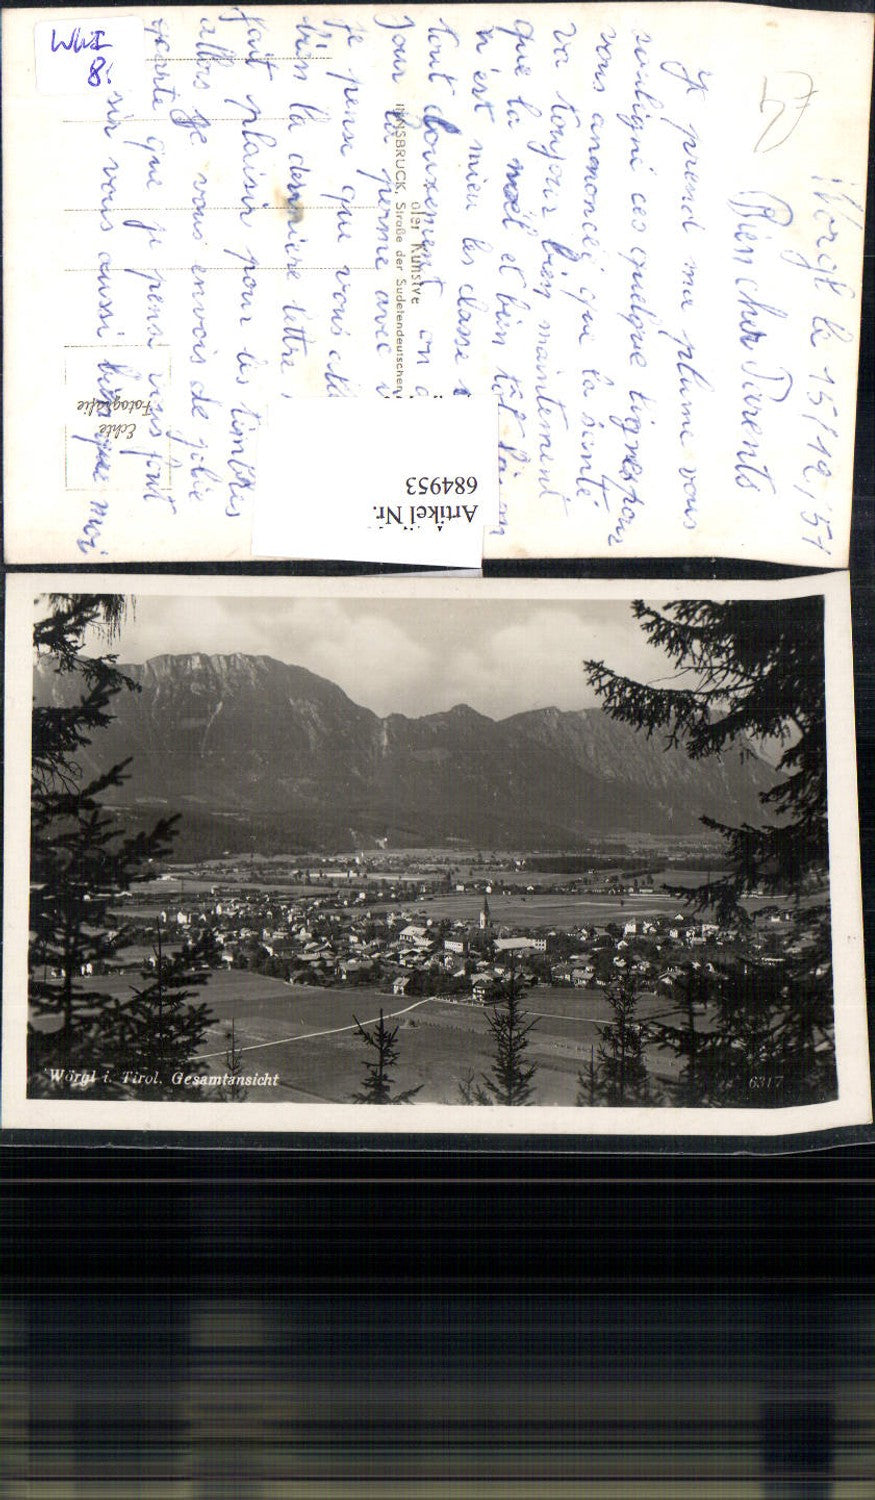 Wörgl le 15/12/51
Bien cher Parents
Je prend ma plume vous
souligné ces quelque lignes pour
vous annoncéz que la santé
va toujour bien maintement
que la noël et bien tôt là on
n'est mieu les classe
tout doucement on
jour la perme avec
je pense que vous
bien la derniere lettre
fait plaisir pour les timbres
allors je vous envois de jolie
carte que je pense vous font
sir vous aussi bien que moi
INNSBRUCK, Straße der Sudetendeutschen
Echte
Fotografie
Artikel Nr.
684953
Wörgl i. Tirol. Gesamtansicht
6317